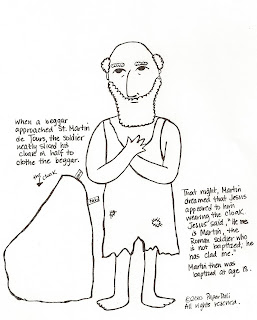 When a beggar
approached St. Martin
de Tours, the soldier
neatly sliced his
cloak in half to
clothe the beggar.
my cloak
That night, Martin
dreamed that Jesus
appeared to him
wearing the cloak.
Jesus said, "He
is Martin, the
Roman soldier who
is not baptized; he
has clad me."
Martin then was
baptized at age
©2010 Paper Dali
All rights reserved.